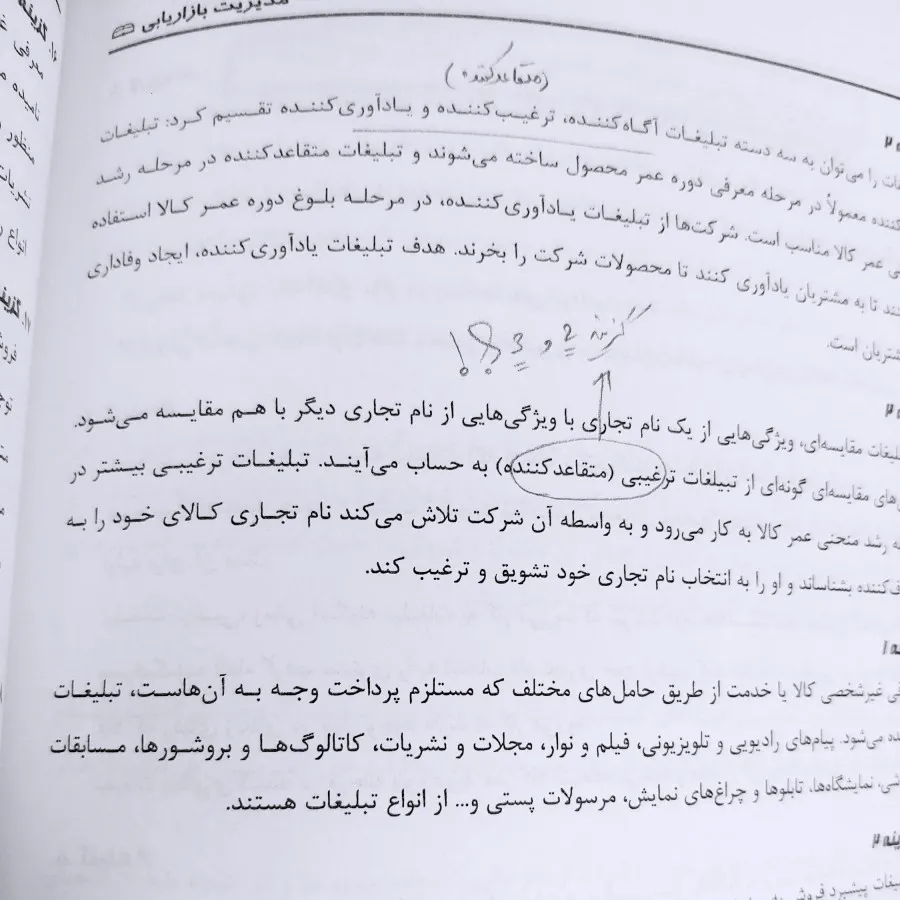 مدیریت بازاریابی
(متقاعدکننده)
را می‌توان به سه دسته تبلیغات آگاه‌کننده، ترغیب‌کننده و یادآوری‌کننده تقسیم کرد: تبلیغات
کننده معمولاً در مرحله معرفی دوره عمر محصول ساخته می‌شوند و تبلیغات متقاعدکننده در مرحله رشد
عمر کالا مناسب است. شرکت‌ها از تبلیغات یادآوری‌کننده، در مرحله بلوغ دوره عمر کالا استفاده
تا به مشتریان یادآوری کنند تا محصولات شرکت را بخرند. هدف تبلیغات یادآوری‌کننده، ایجاد وفاداری
مشتریان است.
گزینه 2 و 3 ؟!
تبلیغات مقایسه‌ای، ویژگی‌هایی از یک نام تجاری با ویژگی‌هایی از نام تجاری دیگر با هم مقایسه می‌شود.
های مقایسه‌ای گونه‌ای از تبیلغات ترغیبی (متقاعدکننده) به حساب می‌آیند. تبلیغات ترغیبی بیشتر در
رشد منحنی عمر کالا به کار می‌رود و به واسطه آن شرکت تلاش می‌کند نام تجاری کالای خود را به
بشناساند و او را به انتخاب نام تجاری خود تشویق و ترغیب کند.
غیرشخصی کالا یا خدمت از طریق حامل‌های مختلف که مستلزم پرداخت وجه به آن‌هاست، تبلیغات
می‌شود. پیام‌های رادیویی و تلویزیونی، فیلم و نوار، مجلات و نشریات، کاتالوگ‌ها و بروشورها، مسابقات
نمایشگاه‌ها، تابلوها و چراغ‌های نمایش، مرسولات پستی و... از انواع تبلیغات هستند.